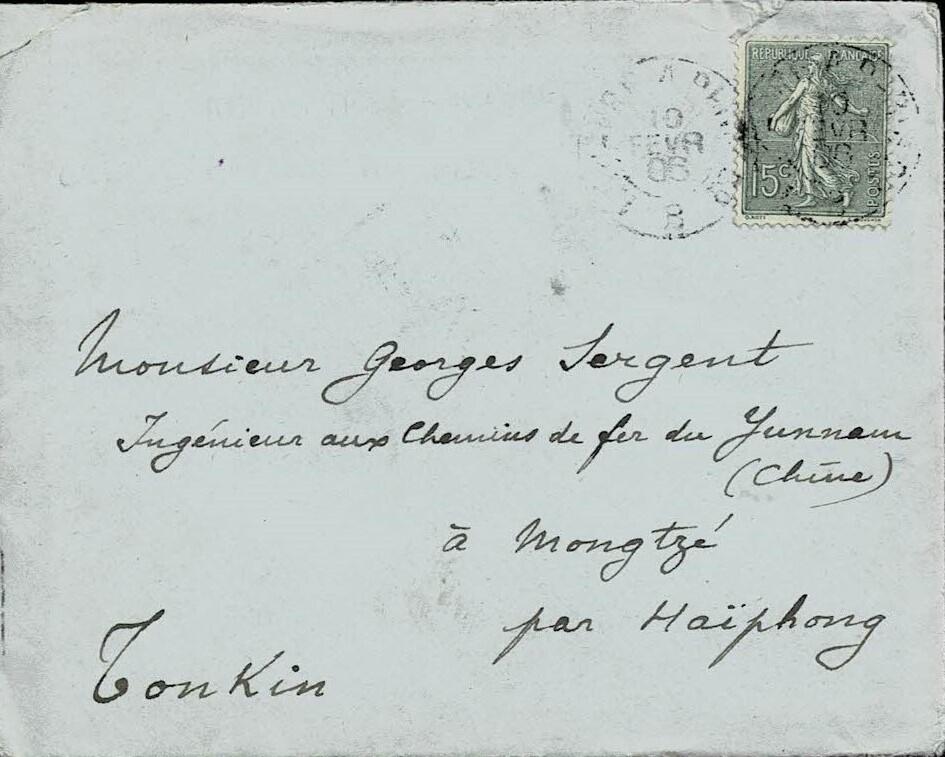 REPUBLIQUE FRANÇAISE
15c
POSTES
O.ROTY
10
FEVR
06
Monsieur Georges Sergent
Ingénieur aux Chemins de fer du Yunnam
(Chine)
à Mongtzé
par Haïphong
Tonkin